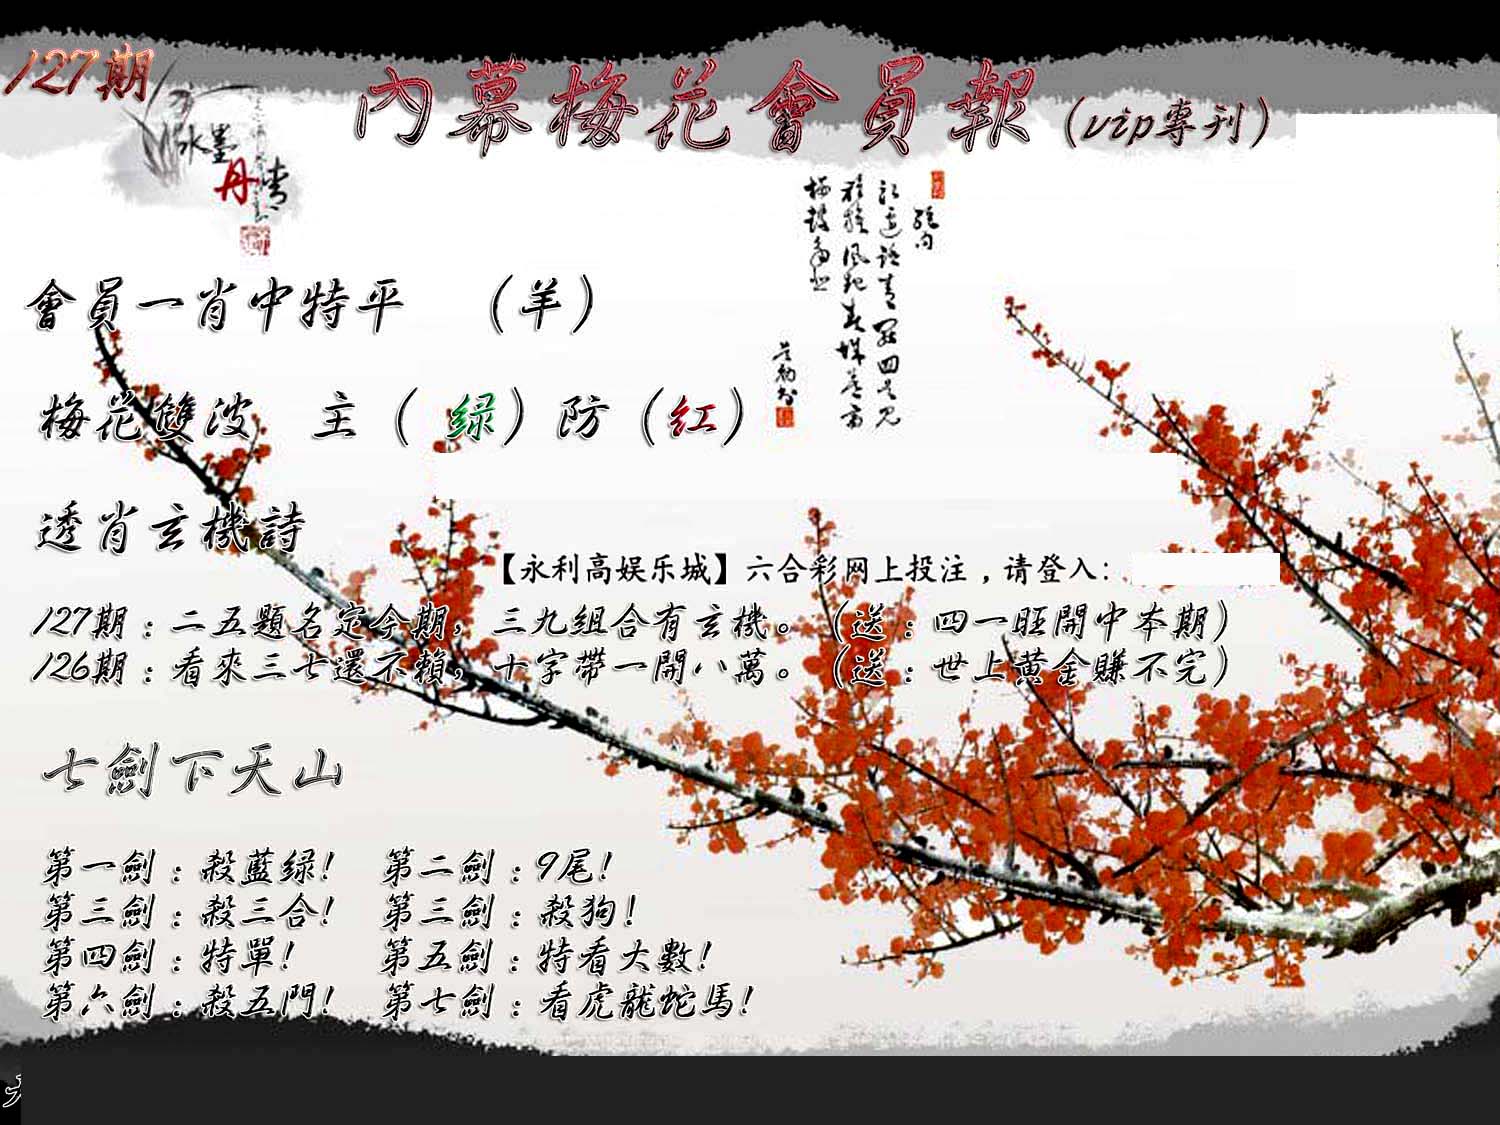 127期
內幕梅花會員報(vip專刊)
水墨
丹青
絕句
會員一肖中特平 (羊)
梅花雙波 主(绿)防(红)
透肖玄機詩
【永利高娱乐城】六合彩网上投注,请登入:
127期:二五題名定今期,三九組合有玄機。(送:四一旺開中本期)
126期:看來三七還不賴,十字帶一開八萬。(送:世上黄金賺不完)
七劍下天山
第一劍:殺藍绿! 第二劍:9尾!
第三劍:殺三合! 第三劍:殺狗!
第四劍:特單! 第五劍:特看大數!
第六劍:殺五門! 第七劍:看虎龍蛇馬!